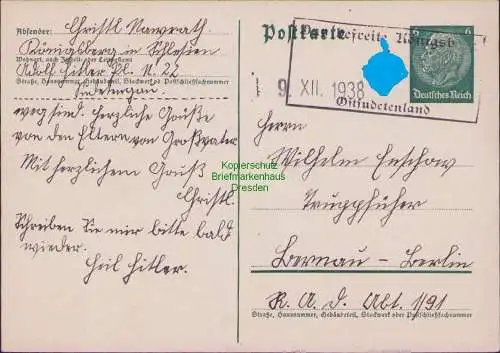 Absender: Christl Nawrath
Königsberg in Schlesien
Wohnort, auch Zustell- oder Leitpostamt
Adolf Hitler Pl. N. 22
Straße, Hausnummer, Gebäudeteil, Stockwerk od. Postschließfachnummer
Sudetengau.
weg sind. Herzliche Grüße
von den Eltern von Großvater
Mit herzlichem Gruß
Christl.
Schreiben Sie mir bitte bald
wieder.
Heil Hitler.
Postkarte
befreite Königsb
9. XII. 1938
Ostsudetenland
6
Deutsches Reich
Kopierschutz
Briefmarkenhaus
Dresden
Herrn
Wilhelm Enschow
Truppführer
Bernau - Berlin
R. A. D. Abt. 1/91
Straße, Hausnummer, Gebäudeteil, Stockwerk oder Postschließfachnummer